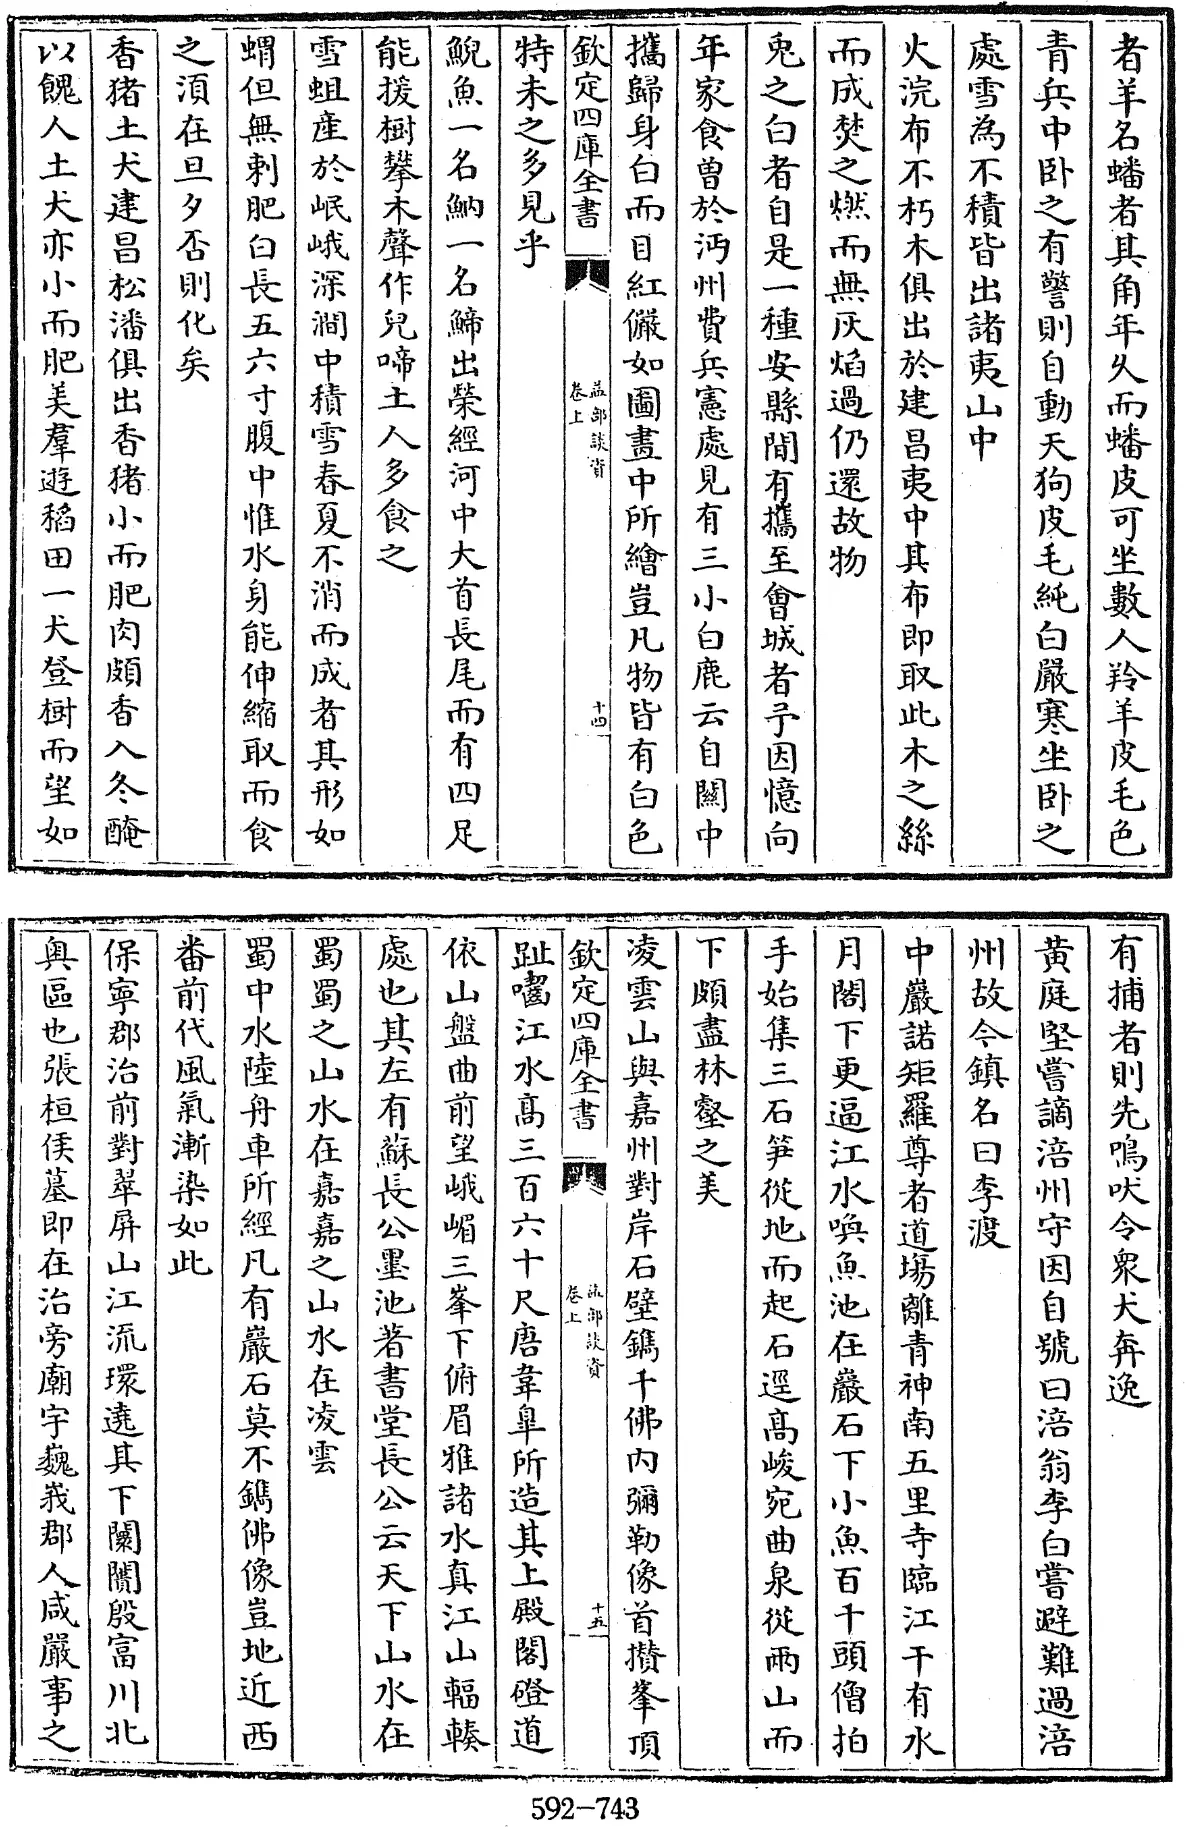 者羊名蟠者其角年乆而蟠皮可坐數人羚羊皮毛色
青兵中卧之有警則自動天狗皮毛純白嚴寒坐卧之
處雪為不積皆出諸夷山中
火浣布不朽木俱出於建昌夷中其布即取此木之絲
而成焚之燃而無灰焰過仍還故物
兎之白者自是一種安縣間有攜至會城者予因憶向
年家食曽於沔州費兵憲處見有三小白鹿云自關中
攜歸身白而目紅儼如圖畫中所繪豈凡物皆有白色
欽定四庫全書
益部談資
卷上
十四
特未之多見乎
鯢魚一名魶一名鯑出榮經河中大首長尾而有四足
能援樹攀木聲作兒啼土人多食之
雪蛆産於岷峨深澗中積雪春夏不消而成者其形如
蝟但無刺肥白長五六寸腹中惟水身能伸縮取而食
之須在旦夕否則化矣
香猪土犬建昌松潘俱出香猪小而肥肉頗香入冬醃
以餽人土犬亦小而肥美羣遊稻田一犬登樹而望如
有捕者則先鳴吠令衆犬奔逸
黄庭堅嘗謫涪州守因自號曰涪翁李白嘗避難過涪
州故今鎮名曰李渡
中巖諾矩羅尊者道場離青神南五里寺臨江干有水
月閣下更逼江水喚魚池在巖石下小魚百千頭僧拍
手始集三石笋從地而起石逕髙峻宛曲泉從兩山而
下頗盡林壑之美
凌雲山與嘉州對岸石壁鐫千佛内彌勒像首攢峯頂
欽定四庫全書
益部談資
卷上
十五
趾嚙江水髙三百六十尺唐韋臯所造其上殿閣磴道
依山盤曲前望峨嵋三峯下俯眉雅諸水真江山輻輳
處也其左有蘇長公墨池著書堂長公云天下山水在
蜀蜀之山水在嘉嘉之山水在凌雲
蜀中水陸舟車所經凡有巖石莫不鐫佛像豈地近西
番前代風氣漸染如此
保寧郡治前對翠屏山江流環遶其下闤闠殷富川北
奥區也張桓侯墓即在治旁廟宇巍峩郡人咸嚴事之
592-743